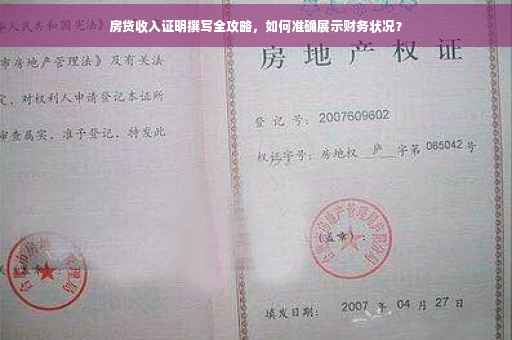 房贷收入证明撰写全攻略，如何准确展示财务状况？
人民共和国宪法》
市房地产管理法》及有关法
定，对权利人申请登记本证所
审查属实，准予登记，特发此
房地产权证
登记号：2007609602
权证字号：房地权 庐 字第 065042 号
(盖章)：
填发日期： 2007 年 04 月 27 日